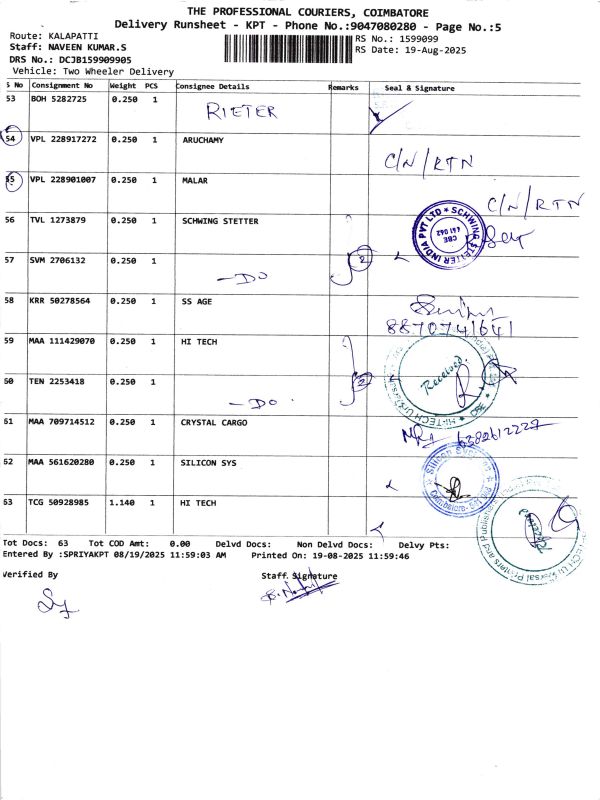 THE PROFESSIONAL COURIERS, COIMBATORE
Delivery Runsheet - KPT - Phone No.:9047080280 - Page No.:5
Route: KALAPATTI
RS No.: 1599099
Staff: NAVEEN KUMAR.S
RS Date: 19-Aug-2025
DRS No.: DCJB159909905
Vehicle: Two Wheeler Delivery
S No Consignment No Weight PCS Consignee Details Remarks Seal & Signature
53 BOH 5282725 0.250 1 RIETER
54 VPL 228917272 0.250 1 ARUCHAMY C/N/RTN
55 VPL 228901007 0.250 1 MALAR C/N/RTN
56 TVL 1273879 0.250 1 SCHWING STETTER
SCHWING STETTER INDIA PVT LTD
CBE
641 042
57 SVM 2706132 0.250 1 -DO 2
58 KRR 50278564 0.250 1 SS AGE
8870741641
59 MAA 111429070 0.250 1 HI TECH
Received
60 TEN 2253418 0.250 1 -DO. 2
61 MAA 709714512 0.250 1 CRYSTAL CARGO 6382612227
62 MAA 561620280 0.250 1 SILICON SYS
63 TCG 50928985 1.140 1 HI TECH
Tot Docs: 63 Tot COD Amt: 0.00 Delvd Docs: Non Delvd Docs: Delvy Pts:
Entered By :SPRIYAKPT 08/19/2025 11:59:03 AM Printed On: 19-08-2025 11:59:46
Verified By Staff. Signature